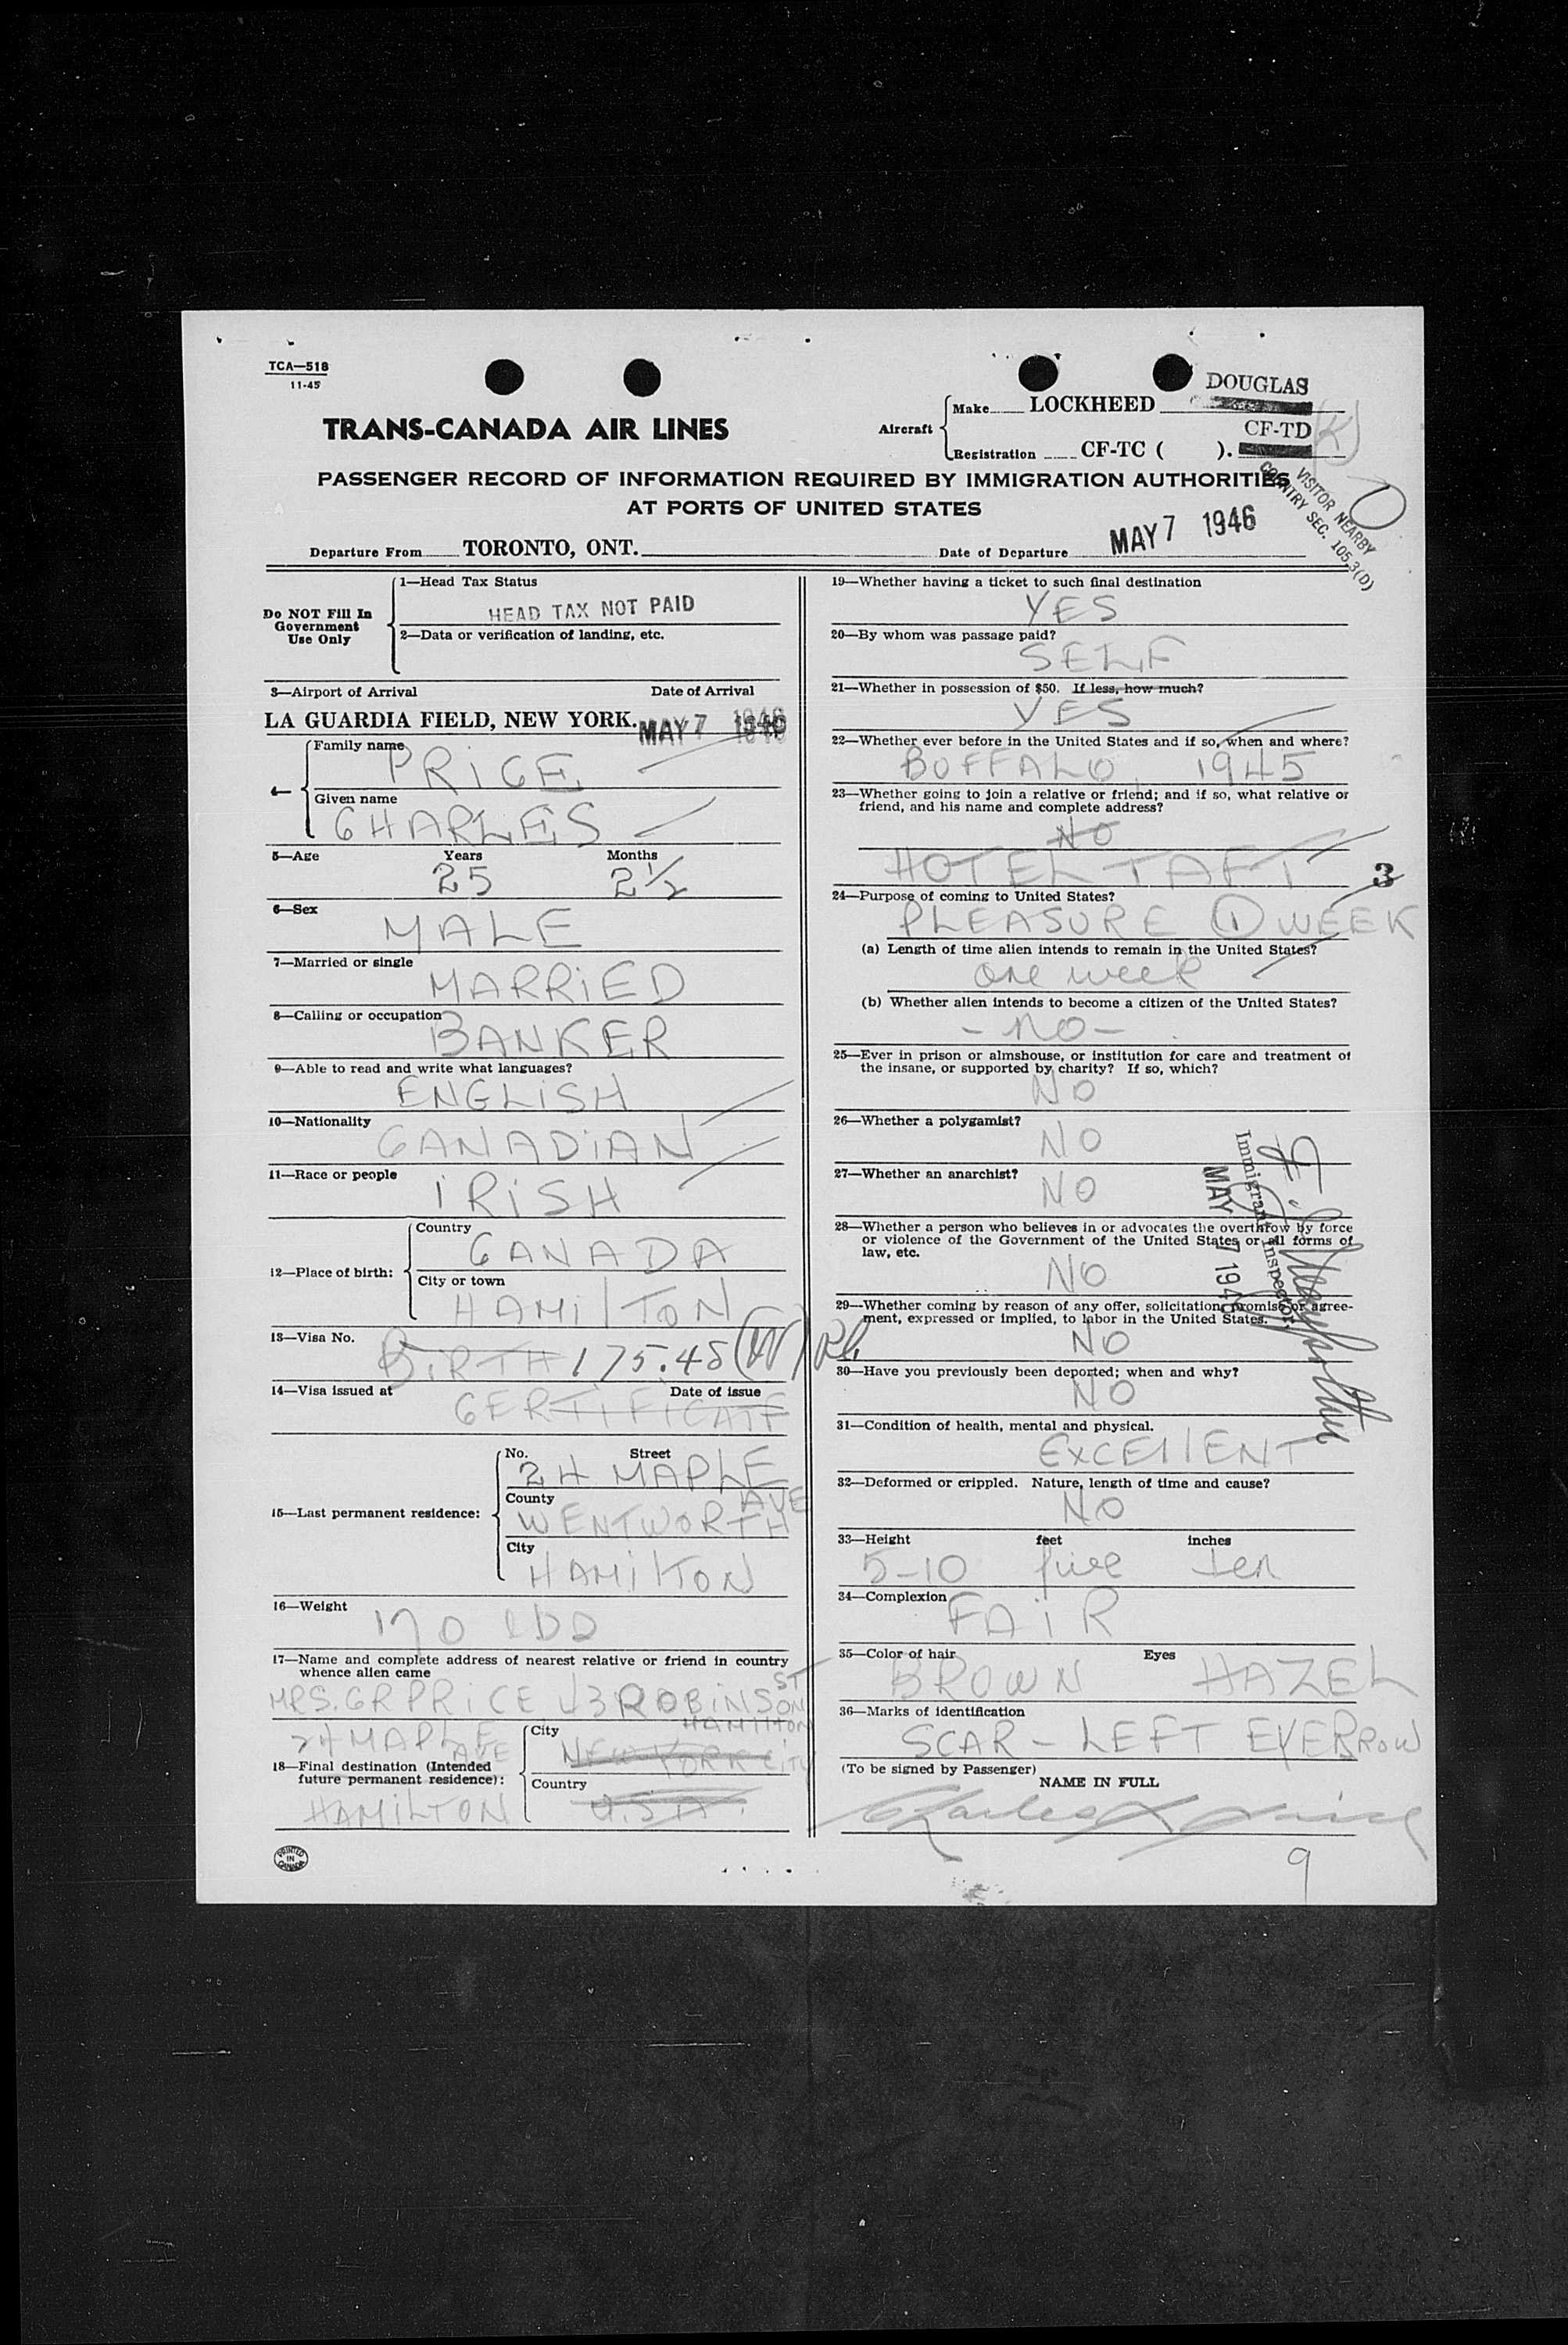 TCA—518
11-45
DOUGLAS
Make LOCKHEED
TRANS-CANADA AIR LINES
Aircraft
CF-TD (K)
Registration CF-TC ( ).
PASSENGER RECORD OF INFORMATION REQUIRED BY IMMIGRATION AUTHORITIES
AT PORTS OF UNITED STATES
VISITOR NEARBY
COUNTRY SEC. 105.3(D)
Departure From TORONTO, ONT. Date of Departure MAY 7 1946
Do NOT Fill In
Government
Use Only
1—Head Tax Status
HEAD TAX NOT PAID
2—Data or verification of landing, etc.
3—Airport of Arrival Date of Arrival
LA GUARDIA FIELD, NEW YORK. MAY 7 1946
4—
Family name
PRICE
Given name
CHARLES
5—Age Years Months
25 2½
6—Sex
MALE
7—Married or single
MARRIED
8—Calling or occupation
BANKER
9—Able to read and write what languages?
ENGLISH
10—Nationality
CANADIAN
11—Race or people
IRISH
12—Place of birth:
Country
CANADA
City or town
HAMILTON
13—Visa No.
BIRTH 175.45 (W)
14—Visa issued at Date of issue
CERTIFICATE
15—Last permanent residence:
No. Street
24 MAPLE
AVE
County
WENTWORTH
City
HAMILTON
16—Weight
170 lbs
17—Name and complete address of nearest relative or friend in country
whence alien came
MRS. GR PRICE 43 ROBINSON ST
HAMILTON
24 MAPLE
AVE
18—Final destination (Intended
future permanent residence):
HAMILTON
City
NEW YORK CITY
Country
U.S.A.
PRINTED
IN
CANADA
19—Whether having a ticket to such final destination
YES
20—By whom was passage paid?
SELF
21—Whether in possession of $50. If less, how much?
YES
22—Whether ever before in the United States and if so, when and where?
BUFFALO, 1945
23—Whether going to join a relative or friend; and if so, what relative or
friend, and his name and complete address?
NO
HOTEL TAFT
3
24—Purpose of coming to United States?
PLEASURE 1 WEEK
(a) Length of time alien intends to remain in the United States?
one week
(b) Whether alien intends to become a citizen of the United States?
- NO -
25—Ever in prison or almshouse, or institution for care and treatment of
the insane, or supported by charity? If so, which?
NO
26—Whether a polygamist?
NO
27—Whether an anarchist?
NO
28—Whether a person who believes in or advocates the overthrow by force
or violence of the Government of the United States or all forms of
law, etc.
NO
29—Whether coming by reason of any offer, solicitation, promise or agree-
ment, expressed or implied, to labor in the United States.
NO
30—Have you previously been deported; when and why?
NO
Immigrant Inspector.
MAY 7 1946
31—Condition of health, mental and physical.
EXCELLENT
32—Deformed or crippled. Nature, length of time and cause?
NO
33—Height feet inches
5-10 five ten
34—Complexion
FAIR
35—Color of hair Eyes
BROWN HAZEL
36—Marks of identification
SCAR - LEFT EYEBROW
(To be signed by Passenger)
NAME IN FULL
Charles Price
9